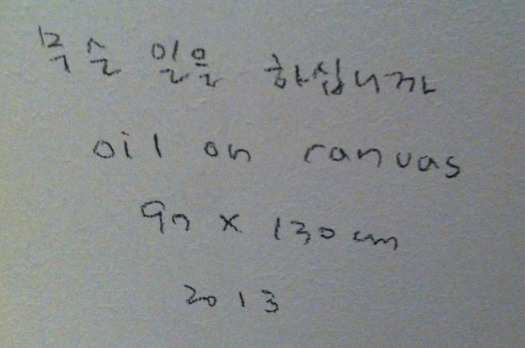 무슨 일을 하십니까
oil on canvas
97 x 130 cm
2013